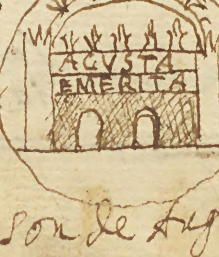 AGVSTA
EMERITA
son de Aug